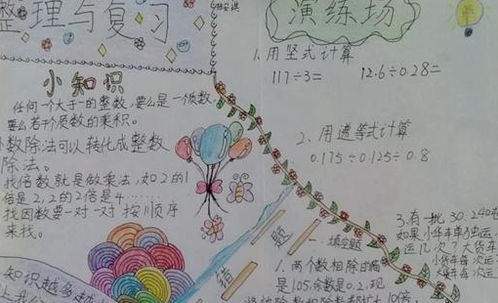 整理与复习
小知识
任何一个大于一的整数,要么是一个质数
要么若干个质数的乘积。
小数除法可以转化成整数
除法。
找倍数就是做乘法,如2的1
倍是2,2的2倍是4……
找因数要一对一对按顺序
来找。
知识越多越
演练场
1.用竖式计算
117÷3= 12.6÷0.28=
2、用递等式计算
0.175÷0.125÷0.8
3.有一批30.240
如果小车单独运
运几次?大货车
小货车每次运
大车每次运
错题
一.填空题
1.两个数相除的商
是105,余数是0.2,现